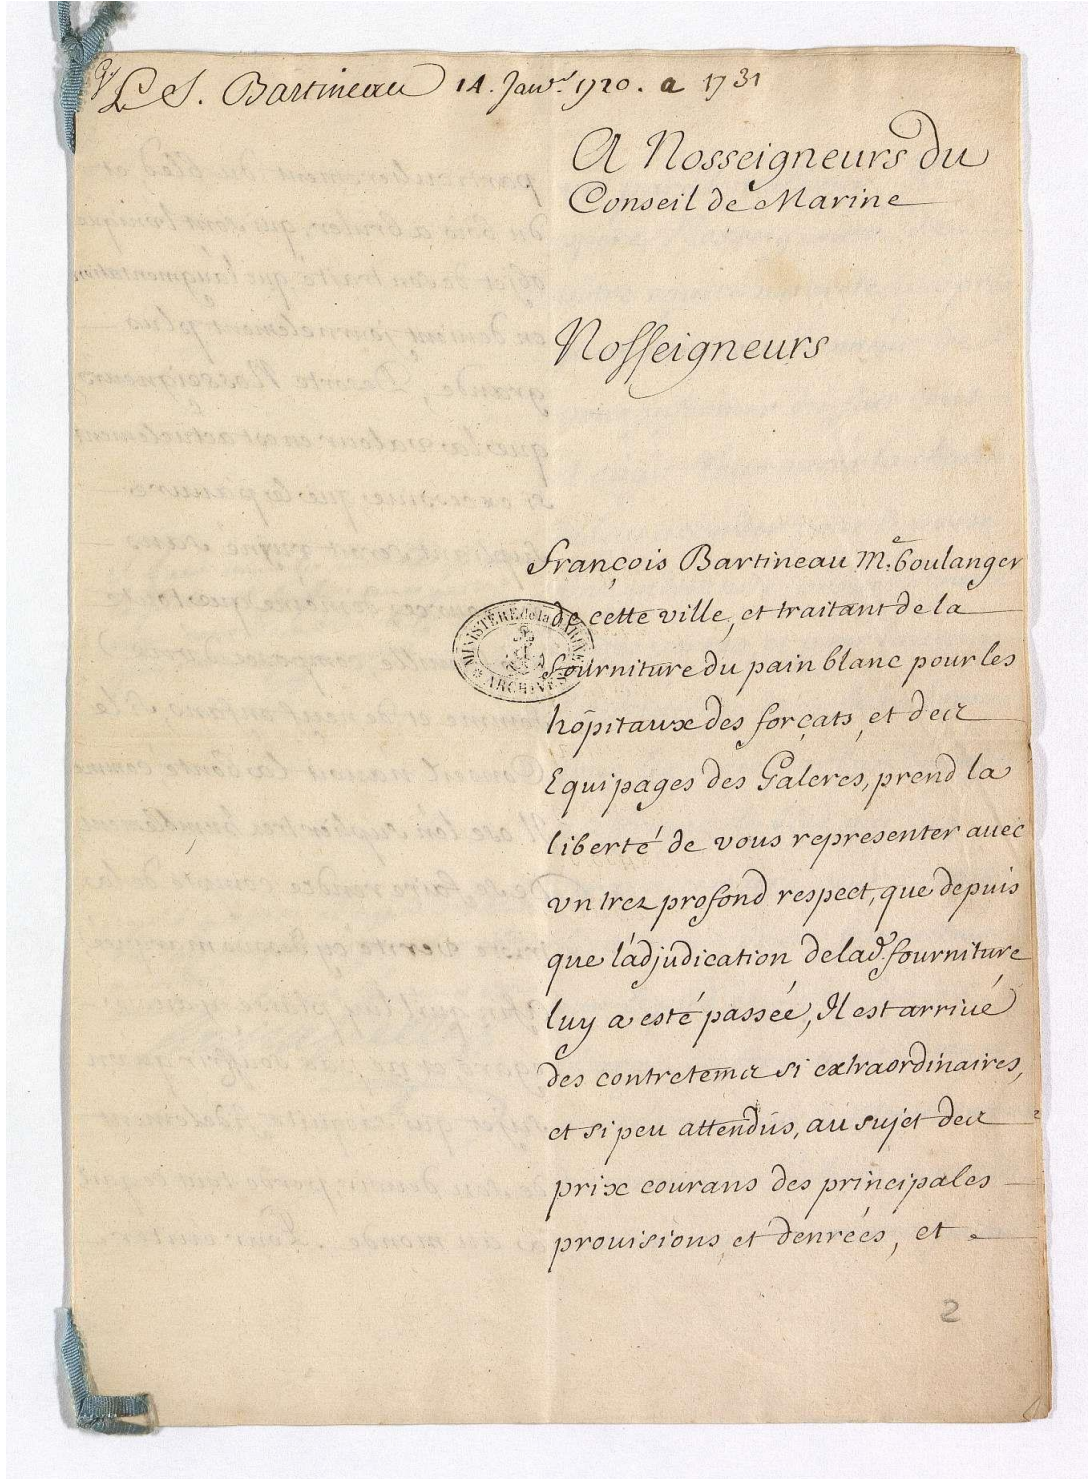 Le S. Bartineau 14. Janv.r 1720. a 1731
A Nosseigneurs du
Conseil de Marine
Nosseigneurs
françois Bartineau M.e boulanger
de cette ville, et traitant de la
fourniture du pain blanc pour les
hôpitaux des forçats, et des
Equipages des Galeres, prend la
liberté de vous representer avec
vn trez profond respect, que depuis
que l'adjudication de lad.e fourniture
luy a esté passée, Il est arriué
des contretems si extraordinaires,
et si peu attendus, au sujet des
prix courans des principales
prouisions et denrées, et
MINISTÈRE de la MARINE
ARCHIVES
2